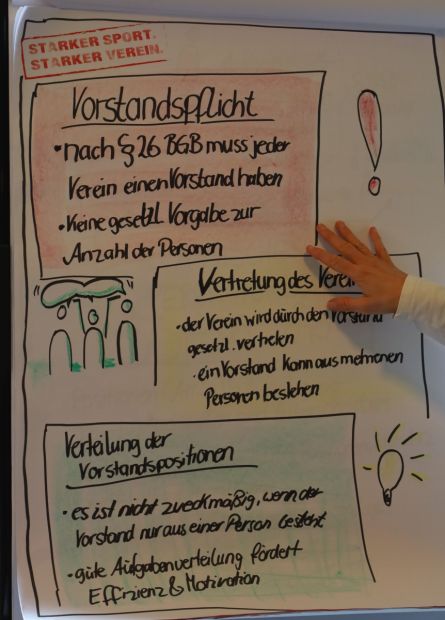 STARKER SPORT.
STARKER VEREIN.
Vorstandspflicht
• nach § 26 BGB muss jeder
Verein einen Vorstand haben
• Keine gesetzl. Vorgabe zur
Anzahl der Personen
Vertretung des
• der Verein wird durch den Vorstand
gesetzl. vertreten
• ein Vorstand kann aus mehreren
Personen bestehen
Verteilung der
Vorstandspositionen
• es ist nicht zweckmäßig, wenn der
Vorstand nur aus einer Person besteht
• gute Aufgabenverteilung fördert
Effizienz & Motivation